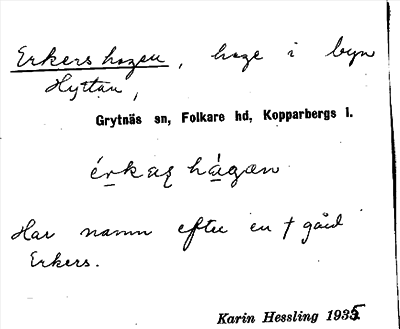 Erkershagen, hage i byn
Hyttan,
Grytnäs sn, Folkare hd, Kopparbergs l.
érkaʂ hágæn
Har namn efter en † gård
Erkers.
Karin Hessling 1935